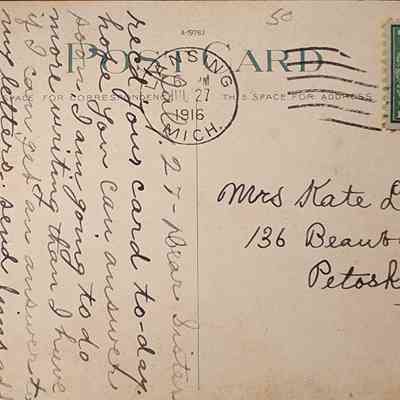 50
A-19763
POST CARD
SPACE FOR CORRESPONDENCE
THIS SPACE FOR ADDRESS
SING
JUL 27
M
1916
MICH.
27 - Dear Sister
recd your card to-day.
hope you can answer
soon I am going to do
more writing than I have
if I can get an answer to
my letters. send
Mrs Kate
136